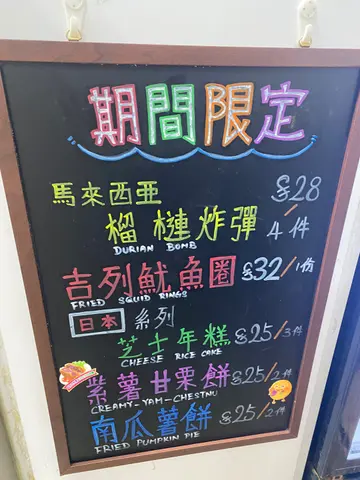 期間限定
馬來西亞 $28
榴槤炸彈 / 4件
DURIAN BOMB
吉列魷魚圈 $32/1份
FRIED SQUID RINGS
日本 系列
芝士年糕 $25/3件
CHEESE RICE CAKE
紫薯甘栗餅 $25/2件
CREAMY-YAM-CHESTNU
南瓜薯餅 $25/2件
FRIED PUMPKIN PIE